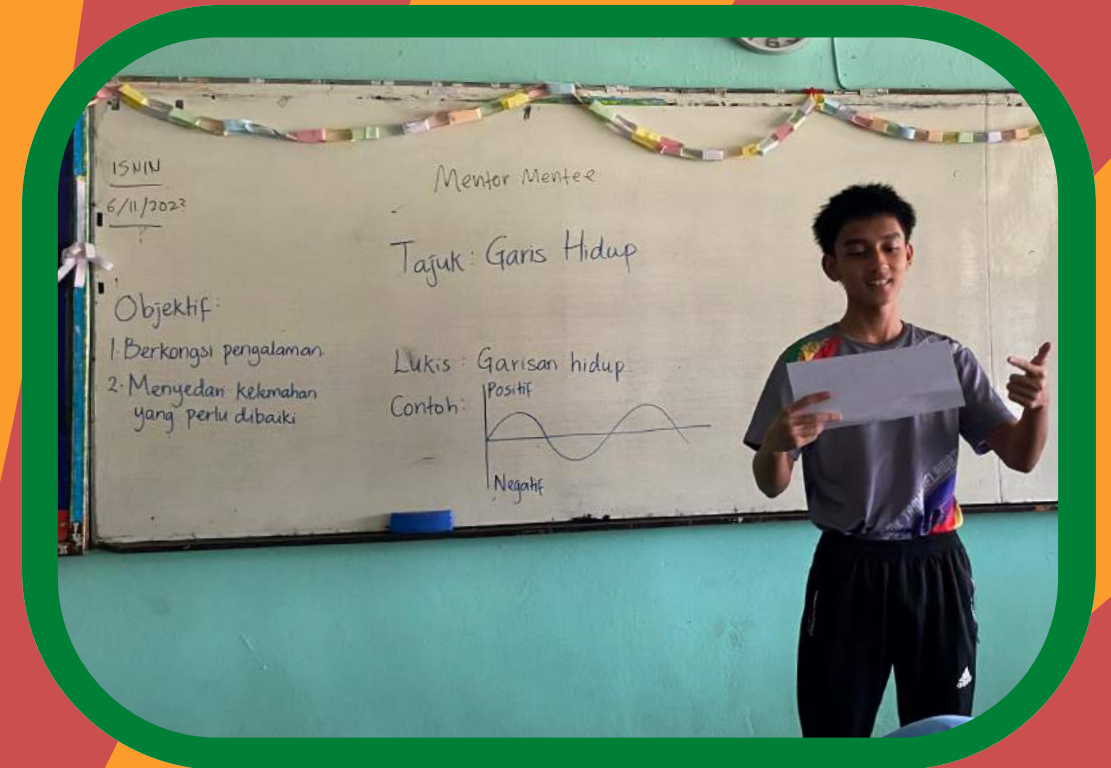 ISNIN
6/11/2023
Mentor Mentee
Tajuk : Garis Hidup
Objektif :
1. Berkongsi pengalaman
2. Menyedari kelemahan
yang perlu dibaiki
Lukis : Garisan hidup
Contoh :
Positif
Negatif